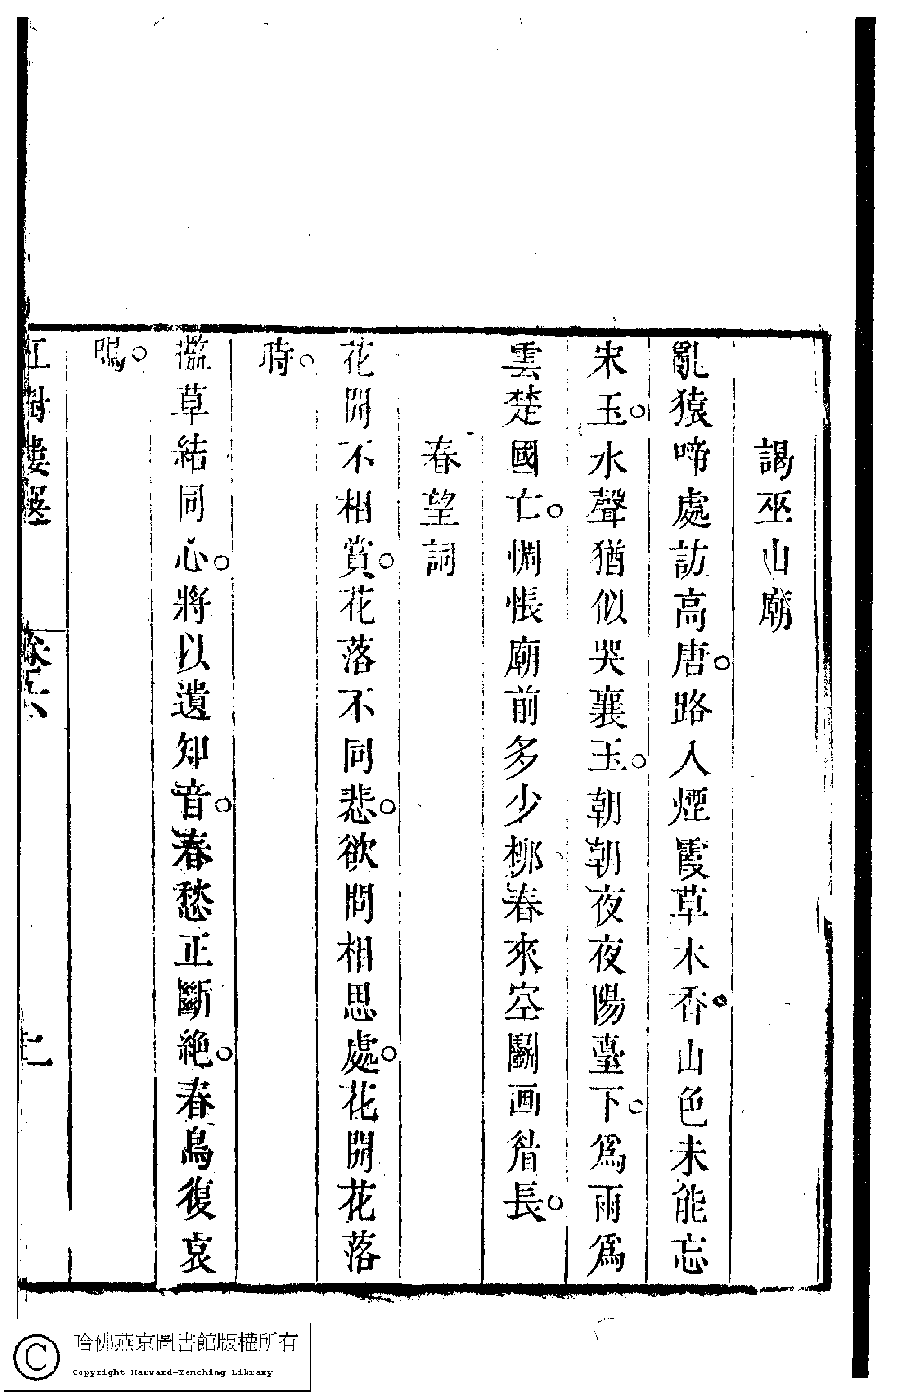 謁巫山廟
亂猿啼處訪高唐。路入煙霞草木香。山色未能忘
宋玉。水聲猶似哭襄王。朝朝夜夜陽臺下。爲雨爲
雲楚國亡。惆悵廟前多少柳春來空鬭画眉長。
春望詞
花開不相賞。花落不同悲。欲問相思處。花開花落
時。
攬草結同心。將以遺知音。春愁正斷絕。春鳥復哀
鳴。
卷六
七
哈佛燕京圖書館版權所有
Copyright Harvard-Yenching Library